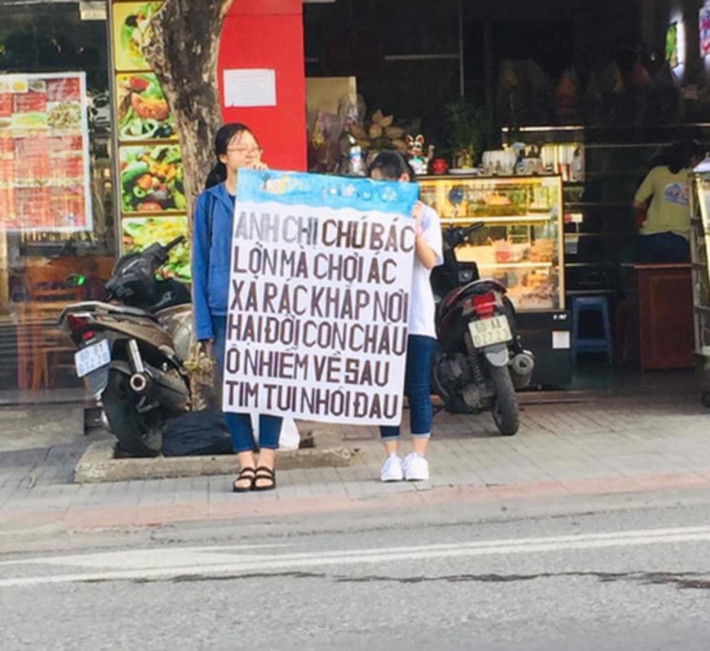 ANH CHỊ CHÚ BÁC
LỚN MÀ CHƠI ÁC
XẢ RÁC KHẮP NƠI
HẠI ĐỜI CON CHÁU
Ô NHIỄM VỀ SAU
TIM TUI NHÓI ĐAU